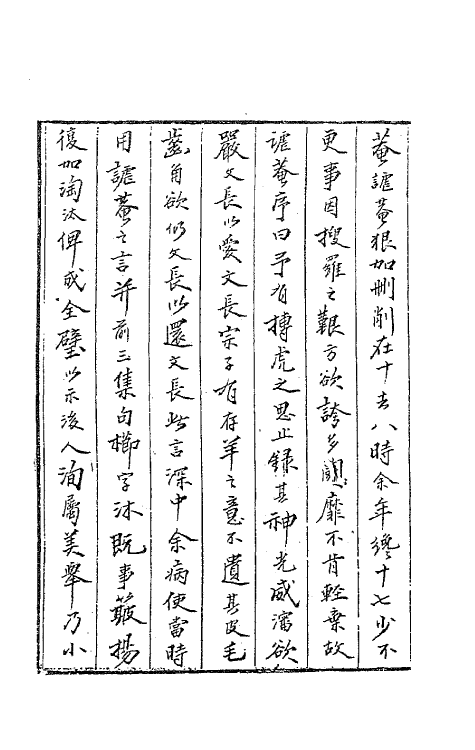 菴謔菴狠加刪削在十去八時余年纔十七少不
更事因搜羅之艱方欲誇多鬭靡不肯輕棄故
謔菴序曰予有搏虎之思止錄其神光威瀋欲
嚴文長以愛文長宗子有存羊之意不遺其皮毛
齒角欲仍文長以還文長此言深中余病使當時
用謔菴之言并前三集句櫛字沐既事簸揚
復加淘汰俾成全璧以示後人洵屬美舉乃小